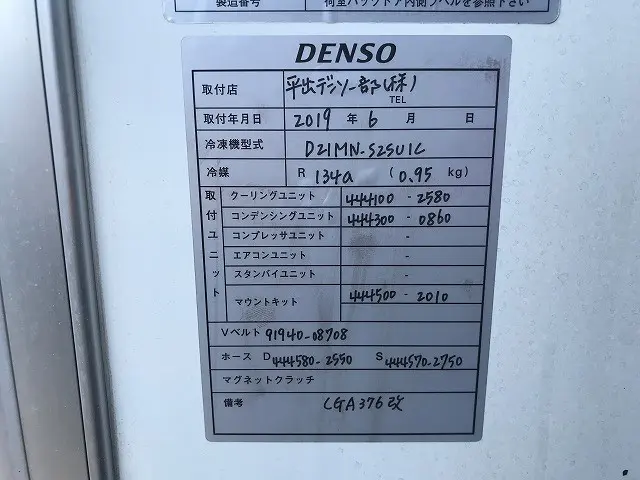 製造番号 荷室バックドア内側ラベルを参照下さい
DENSO
取付店
TEL
取付年月日 2019 年 6 月 日
冷凍機型式 D21MN-S25U1C
冷媒 R 134a ( 0.95 kg)
取付ユニット
クーリングユニット 444100 - 2580
コンデンシングユニット 444300 - 0860
コンプレッサユニット -
エアコンユニット -
スタンバイユニット -
マウントキット 444500 - 2010
Vベルト 91940-08708
ホース D 444580-2550 S 444570-2750
マグネットクラッチ
備考 LGA376改